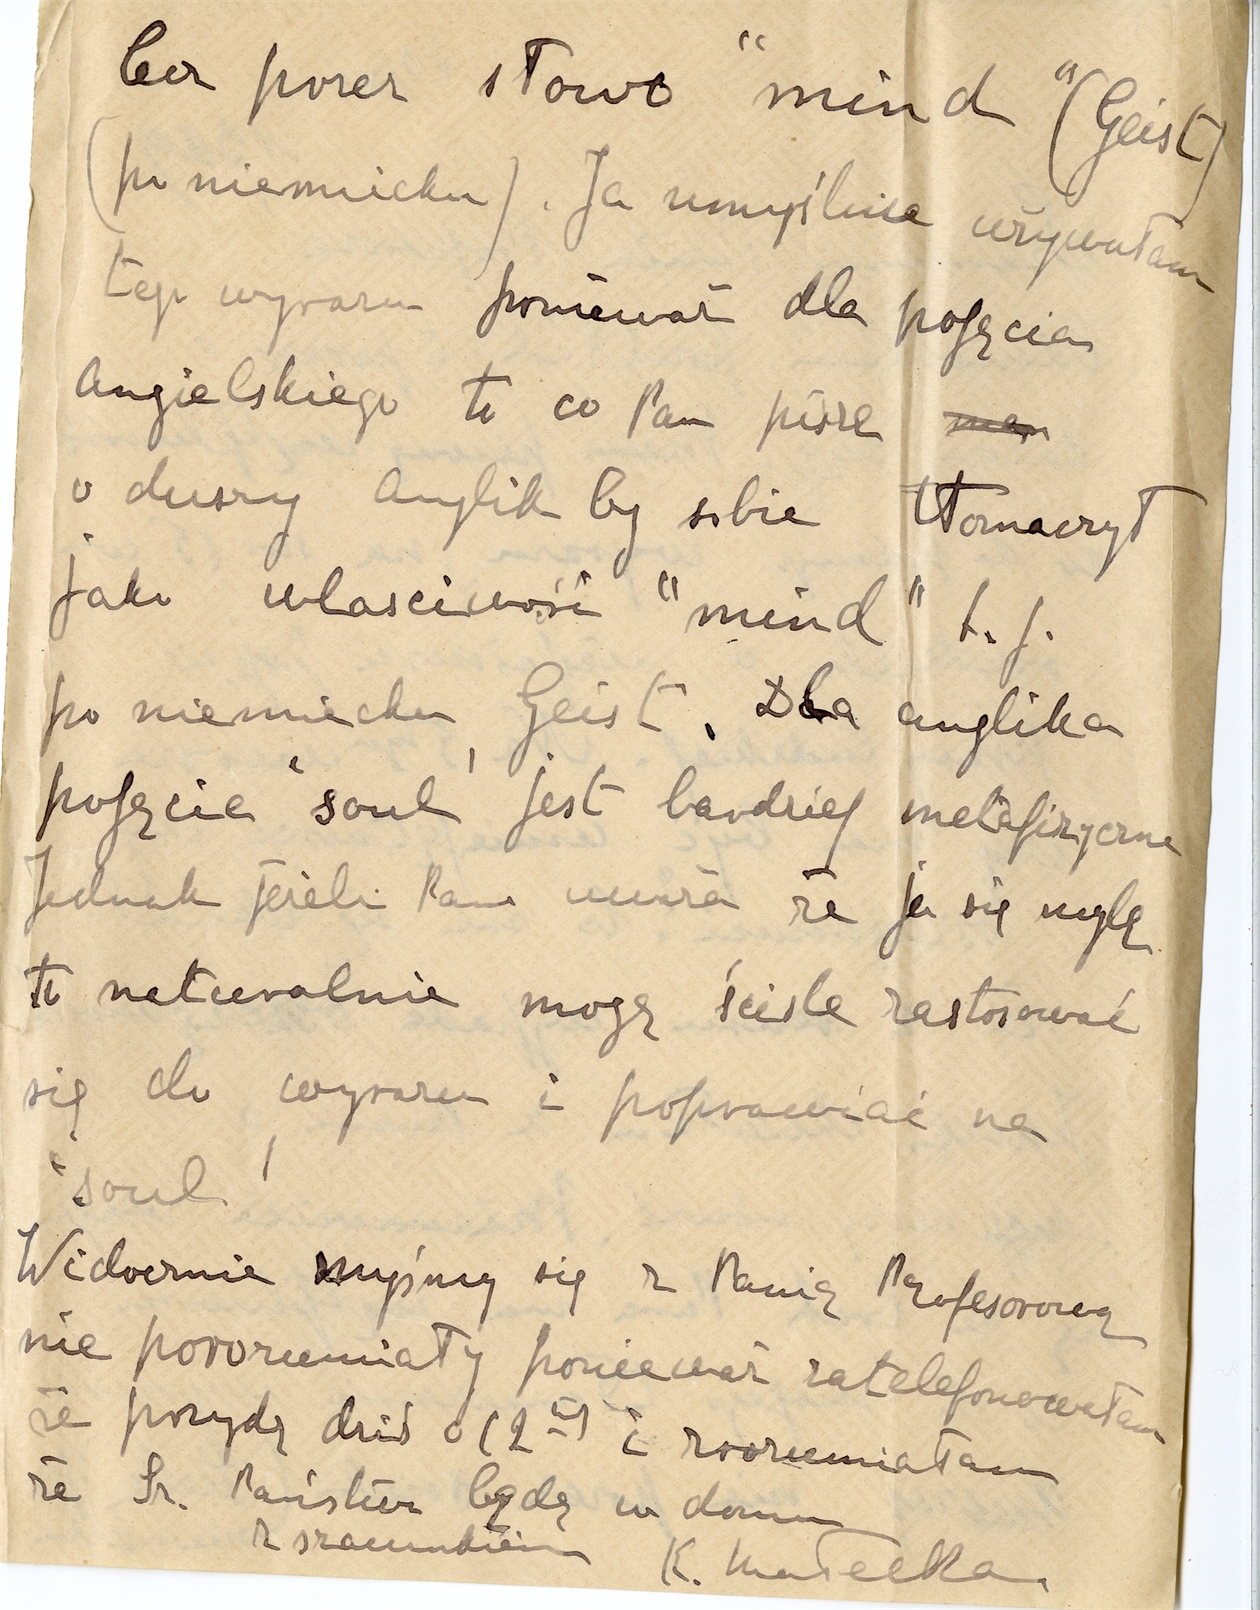 lecz przez słowo "mind" (Geist)
(po niemiecku). Ja umyślnie używałam
tego wyrazu ponieważ dla pojęcia
angielskiego to co Pan pisze
o duszy Anglik by sobie tłomaczył
jako wlasciwość "mind" t. j.
po niemiecku Geist. Dla anglika
pojęcie 'soul' jest bardziej metafizyczne
Jednak jeżeli Pan uważa że ja się mylę
to naturalnie mogę ściśle zastosować
się do wyrazu i poprawiać na
'soul'
Widocznie myśmy się z Panią Profesorową
nie porozumiały ponieważ zatelefonowałam
że przyjdę dziś o 12 i rozumiałam
że Sz. Państwo będą w domu
z szacunkiem K. Małecka.